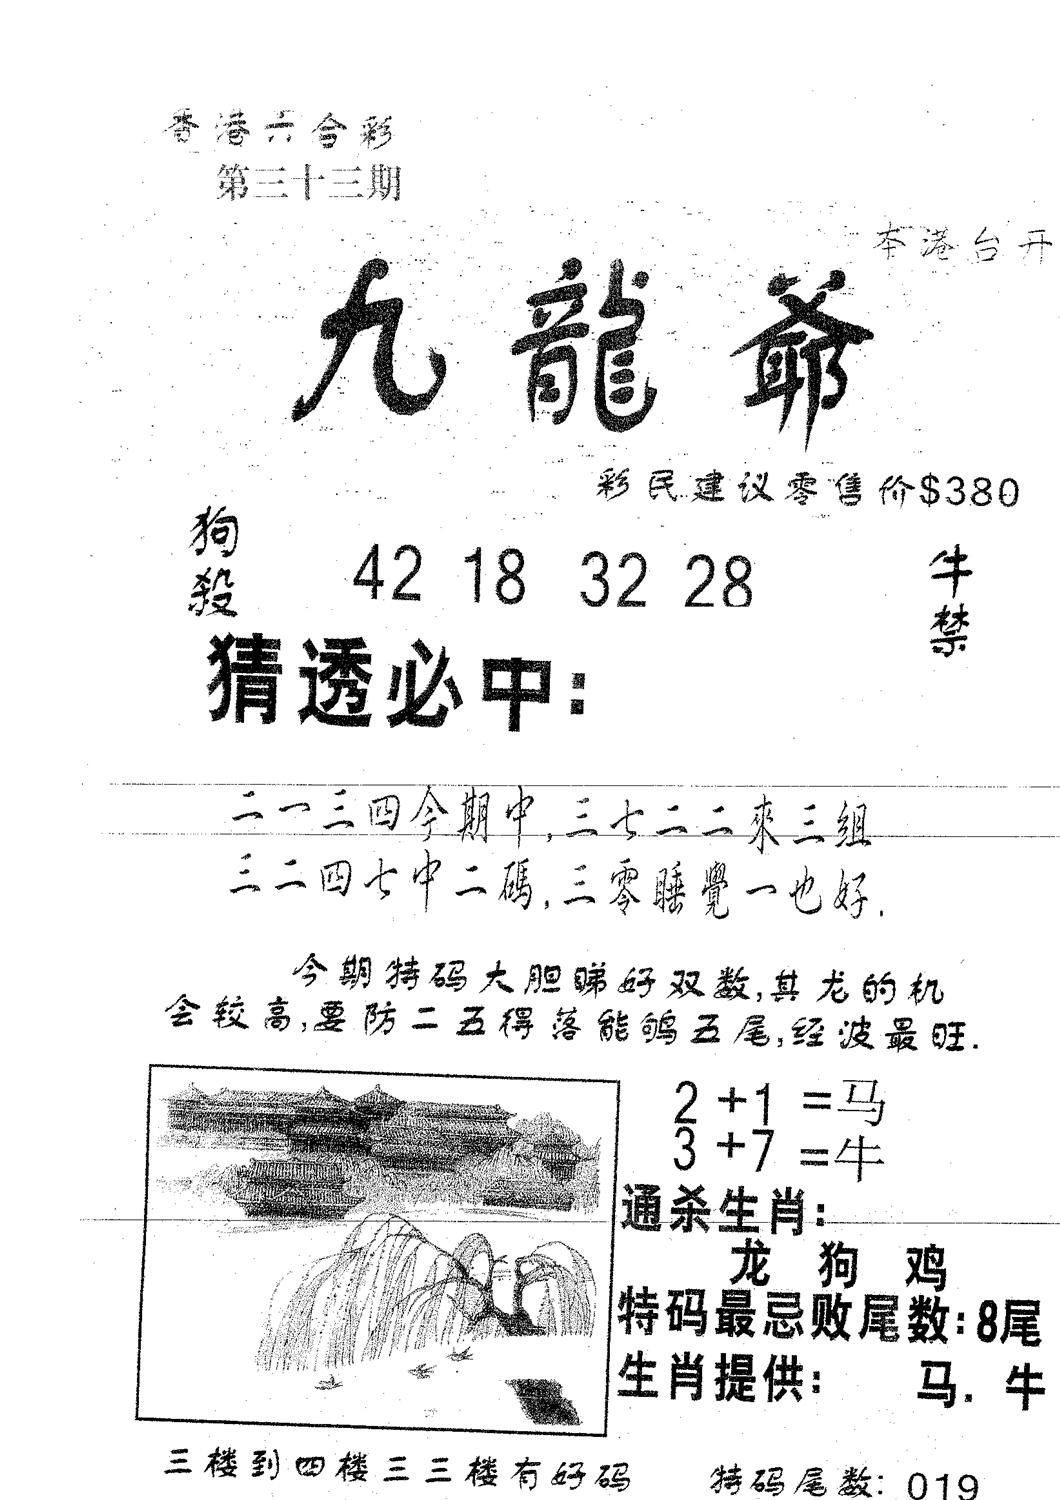 香港六合彩
第三十三期
本港台开
九龍爺
彩民建议零售价$380
狗殺
42 18 32 28
牛禁
猜透必中:
二一三四今期中,三七二二來三組
三二四七中二碼,三零睡覺一也好.
今期特码大胆睇好双数,其龙的机
会较高,要防二五得落能鸲五尾,经波最旺.
2+1=马
3+7=牛
通杀生肖:
龙 狗 鸡
特码最忌败尾数:8尾
生肖提供: 马. 牛
三楼到四楼三三楼有好码 特码尾数: 019